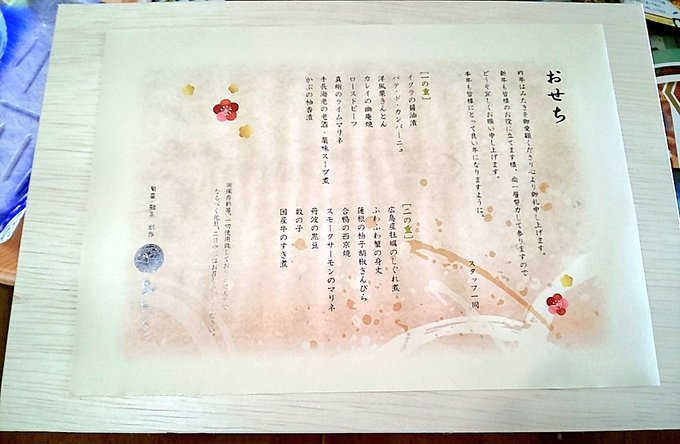 おせち
昨年はみたきを御愛顧くださり心より御礼申し上げます。
新年も皆様のお役に立てます様、尚一層努力して参りますので
どうぞ宜しくお願い申し上げます。
本年も皆様にとって良い年になりますように。
スタッフ一同
【一の重】
イクラの醤油漬
パテ・ド・カンパーニュ
洋風栗きんとん
カレイの幽庵焼
ローストビーフ
真鯛のライムマリネ
手長海老の老酒・薬味スープ煮
かぶの柚香漬
【二の重】
広島産牡蠣のしぐれ煮
ふわふわ蟹の身丈
蓮根の柚子胡椒きんぴら
合鴨の西京焼
スモークサーモンのマリネ
丹波の黒豆
数の子
国産牛のすき煮